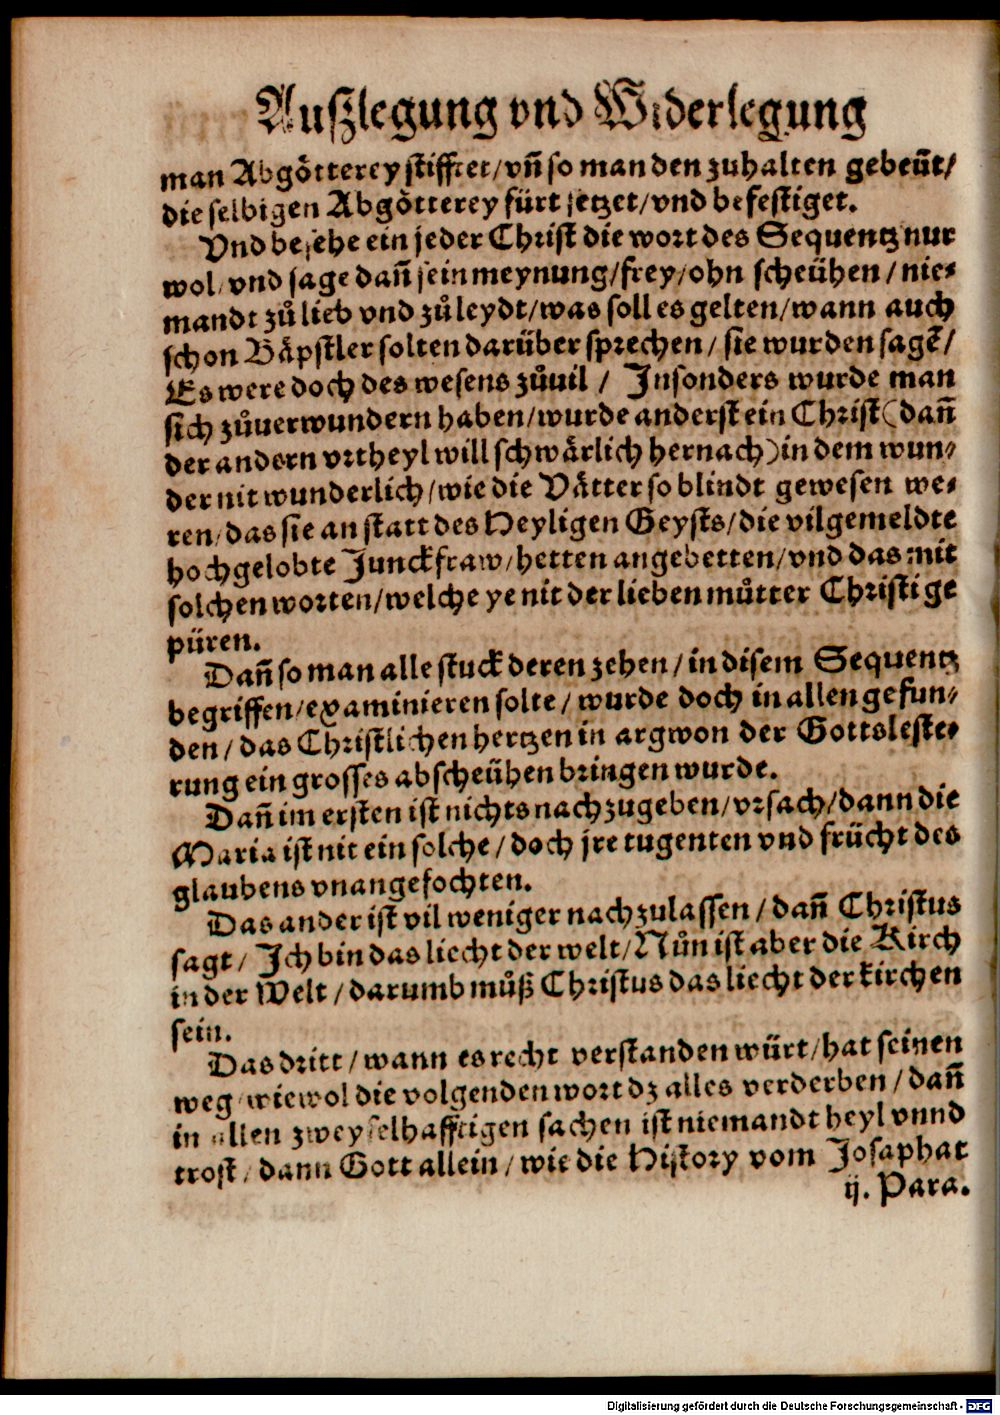 Außlegung vnd Widerlegung
man Abgötterey stifftet/vñ so man den zuhalten gebeüt/
die selbigen Abgötterey fürt jetzet/vnd befestiget.
Vnd besehe ein jeder Christ die wort des Sequentz nur
wol/vnd sage dañ sein meynung/frey/ohn scheühen/nie-
mandt zů lieb vnd zů leydt/was soll es gelten/wann auch
schon Bäpstler solten darüber sprechen/sie wurden sagẽ/
Es were doch des wesens zůuil/ Insonders wurde man
sich zůuerwundern haben/wurde anderst ein Christ(dañ
der andern vrtheyl will schwärlich hernach)in dem wun-
der nit wunderlich/wie die Vätter so blindt gewesen we-
ren/das sie an statt des Heyligen Geysts/die vilgemeldte
hochgelobte Junckfraw/hetten angebetten/vnd das mit
solchen worten/welche ye nit der lieben můtter Christi ge
püren.
Dañ so man alle stuck deren zehen/in disem Sequentz
begriffen/examinieren solte/wurde doch in allen gefun-
den/das Christlichen hertzen in argwon der Gottsleste-
rung ein grosses abscheühen bringen wurde.
Dañ im ersten ist nichts nachzugeben/vrsach/dann die
Maria ist nit ein solche/doch jre tugenten vnd frücht des
glaubens vnangefochten.
Das ander ist vil weniger nachzulassen/dañ Christus
sagt/Ich bin das liecht der welt/Nůn ist aber die Kirch
in der Welt/darumb můß Christus das liecht der kirchen
sein.
Das dritt/wann es recht verstanden würt/hat seinen
weg/wiewol die volgenden wort dz alles verderben/dañ
in allen zweyfelhafftigen sachen ist niemandt heyl vnnd
trost/dann Gott allein/wie die History vom Josaphat
ij. Para.
Digitalisierung gefördert durch die Deutsche Forschungsgemeinschaft - DFG